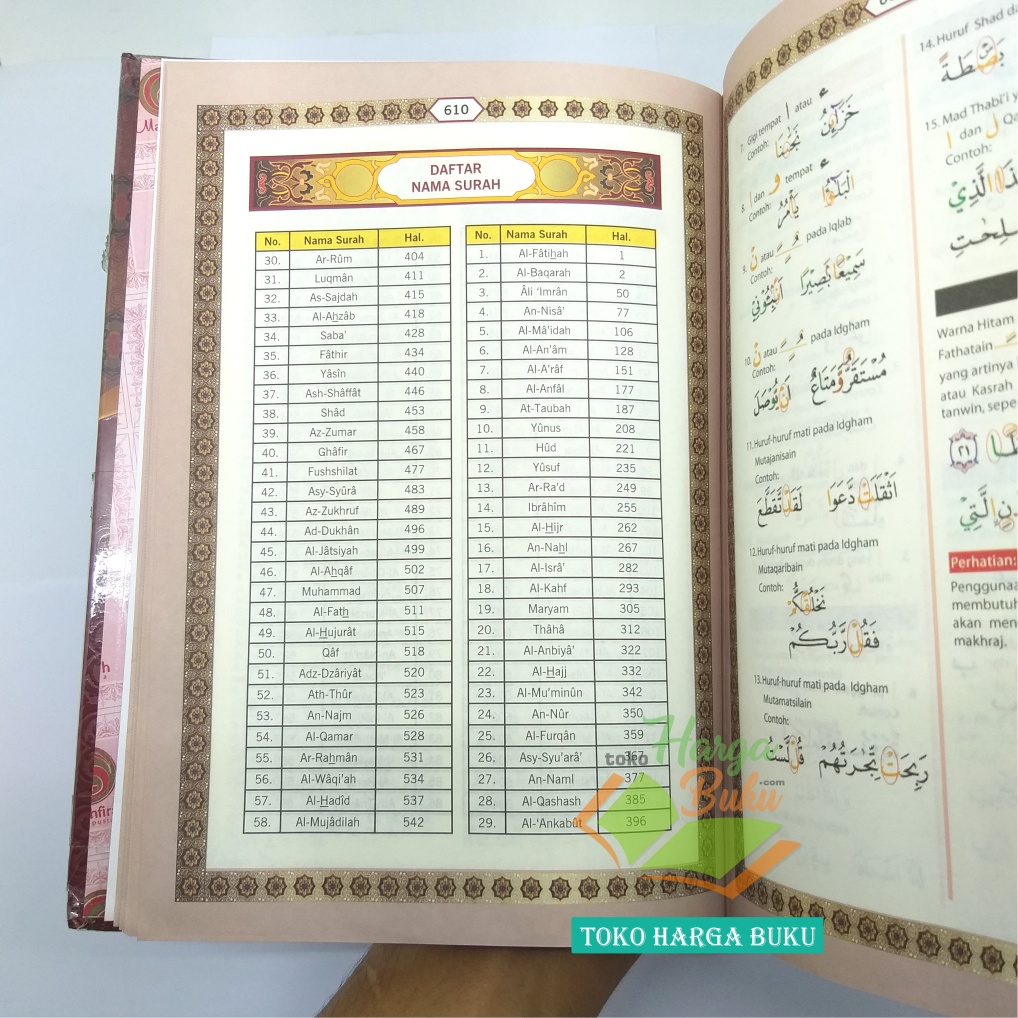 610
DAFTAR
NAMA SURAH
No. Nama Surah Hal.
1. Al-Fâtihah 1
2. Al-Baqarah 2
3. Âli 'Imrân 50
4. An-Nisâ' 77
5. Al-Mâ'idah 106
6. Al-An'âm 128
7. Al-A'râf 151
8. Al-Anfâl 177
9. At-Taubah 187
10. Yûnus 208
11. Hûd 221
12. Yûsuf 235
13. Ar-Ra'd 249
14. Ibrâhîm 255
15. Al-Hijr 262
16. An-Nahl 267
17. Al-Isrâ' 282
18. Al-Kahf 293
19. Maryam 305
20. Thâhâ 312
21. Al-Anbiyâ' 322
22. Al-Hajj 332
23. Al-Mu'minûn 342
24. An-Nûr 350
25. Al-Furqân 359
26. Asy-Syu'arâ' 367
27. An-Naml 377
28. Al-Qashash 385
29. Al-'Ankabût 396
No. Nama Surah Hal.
30. Ar-Rûm 404
31. Luqmân 411
32. As-Sajdah 415
33. Al-Ahzâb 418
34. Saba' 428
35. Fâthir 434
36. Yâsîn 440
37. Ash-Shâffât 446
38. Shâd 453
39. Az-Zumar 458
40. Ghâfir 467
41. Fushshilat 477
42. Asy-Syûrâ 483
43. Az-Zukhruf 489
44. Ad-Dukhân 496
45. Al-Jâtsiyah 499
46. Al-Ahqâf 502
47. Muhammad 507
48. Al-Fath 511
49. Al-Hujurât 515
50. Qâf 518
51. Adz-Dzâriyât 520
52. Ath-Thûr 523
53. An-Najm 526
54. Al-Qamar 528
55. Ar-Rahmân 531
56. Al-Wâqi'ah 534
57. Al-Hadîd 537
58. Al-Mujâdilah 542
7. Gigi tempat ا atau ء
Contoh: نَجَّيْنَا خَزَآئِنُ
8. ا dan و tempat ء
Contoh: يَأْمُرُ الْبَلٰٓؤُا
9. نْ atau ـٌـ pada Iqlab
Contoh:
سَمِيْعًا بَصِيْرًا
10. نْ atau pada Idgham
Contoh:
اَنْ يُّوْصَلَ مُسْتَقَرٌّ وَّمَتَاعٌ
11. Huruf-huruf mati pada Idgham
Mutajanisain
Contoh:
لَقَدْ تَّقَطَّعَ اَثْقَلَتْ دَّعَوَا
12. Huruf-huruf mati pada Idgham
Mutaqaribain
Contoh:
نَخْلُقْكُّمْ
فَقُلْ رَبُّكُمْ
13. Huruf-huruf mati pada Idgham
Mutamatsilain
Contoh:
رَبِحَتْ تِّجَارَتُهُمْ
14. Huruf Shad
بَصْۜطَةً
15. Mad Thabi'i
ا dan ل
Contoh:
Warna Hitam
Fathatain
yang artinya
atau Kasrah
tanwin, sepe
٢١
Perhatian:
Penggunaa
membutuh
akan men
makhraj.
toko Harga Buku .com
TOKO HARGA BUKU